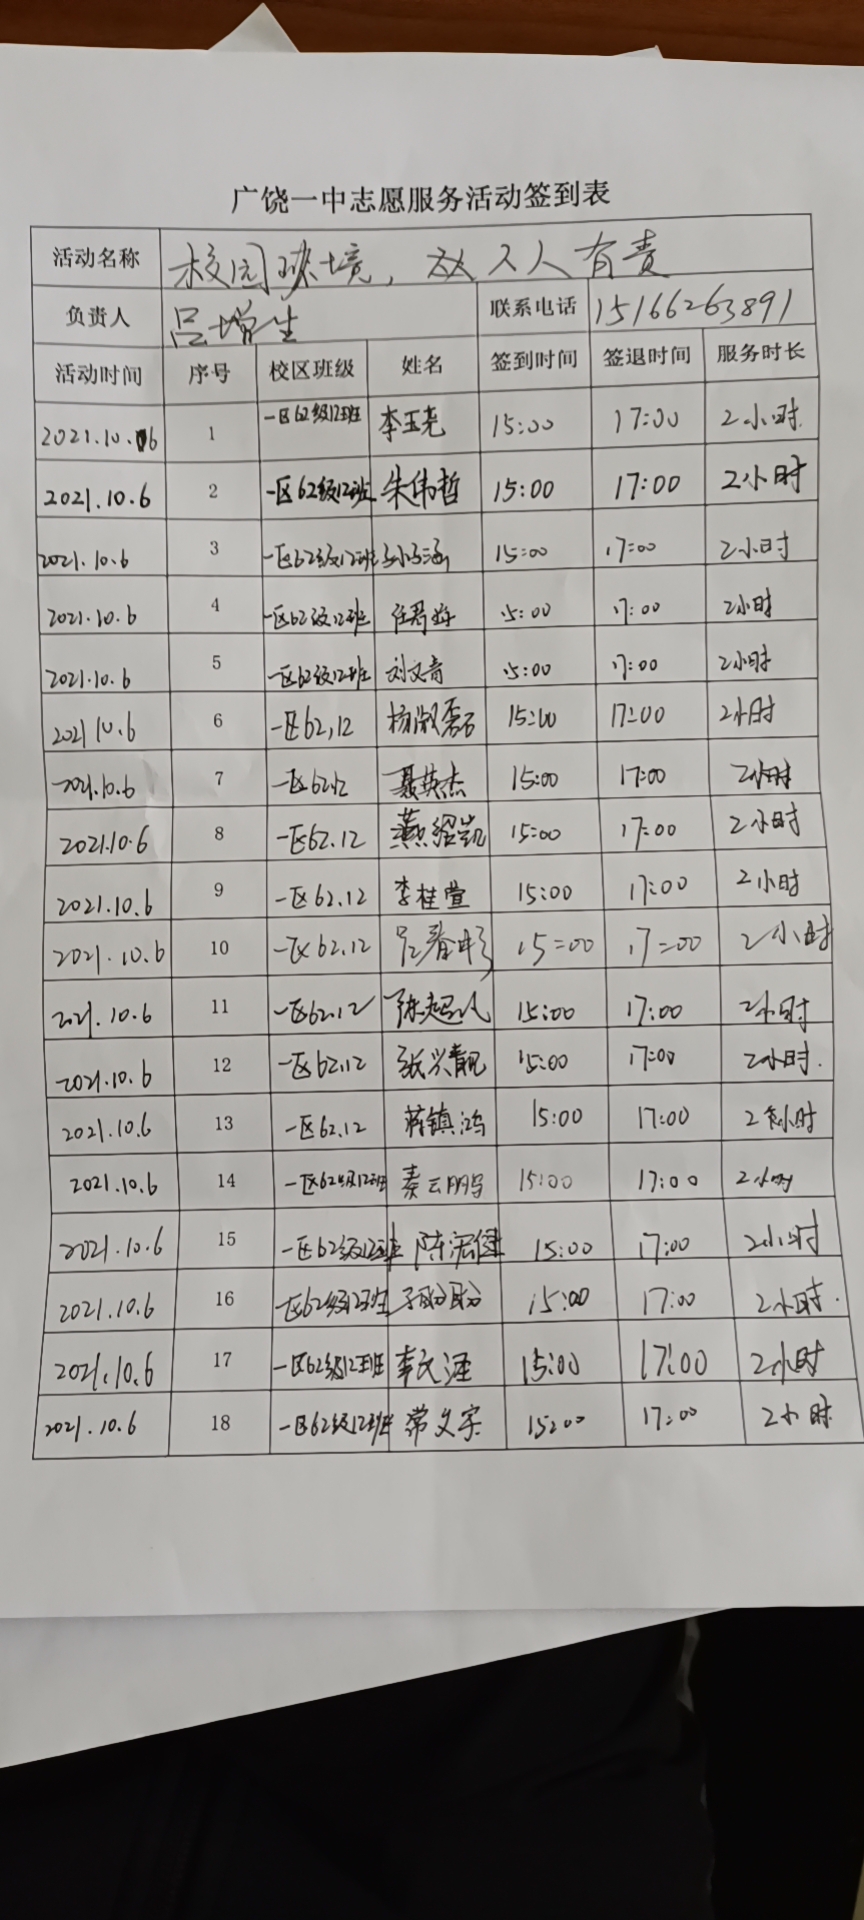 广饶一中志愿服务活动签到表
活动名称 校园环境，人人有责
负责人 吕增生 联系电话 15166263891
活动时间 序号 校区班级 姓名 签到时间 签退时间 服务时长
2021.10.6 1 一区62级12班 李玉亮 15:00 17:00 2小时.
2021.10.6 2 一区62级12班 朱伟哲 15:00 17:00 2小时
2021.10.6 3 一区62级12班 15:00 17:00 2小时
2021.10.6 4 一区62级12班 任 15:00 17:00 2小时
2021.10.6 5 一区62级12班 刘文奇 15:00 17:00 2小时
2021 10.6 6 一区62,12 杨淑磊 15:00 17:00 2小时
2021.10.6 7 一区62.12 聂英杰 15:00 17:00 2小时
2021.10.6 8 一区62.12 燕绍凯 15:00 17:00 2小时
2021.10.6 9 一区62.12 李桂萱 15:00 17:00 2小时
2021.10.6 10 一区62.12 吕春彤 15:00 17:00 2小时
2021.10.6 11 一区62.12 张超凡 15:00 17:00 2小时
2021.10.6 12 一区62.12 张兴靓 15:00 17:00 2小时.
2021.10.6 13 一区62.12 蒋镇鸿 15:00 17:00 2小时
2021.10.6 14 一区62级12班 秦云鹏 15:00 17:00 2小时
2021.10.6 15 一区62级12班 陈宏健 15:00 17:00 2小时
2021.10.6 16 一区62级12班 15:00 17:00 2小时.
2021.10.6 17 一区62级12班 李文 15:00 17:00 2小时
2021.10.6 18 一区62级12班 常文宇 15:00 17:00 2小时